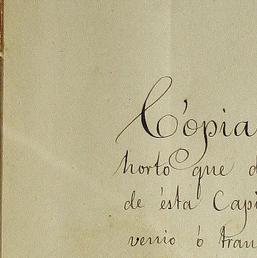 Cópia
horto que d
de ésta Capi
venio ó tran